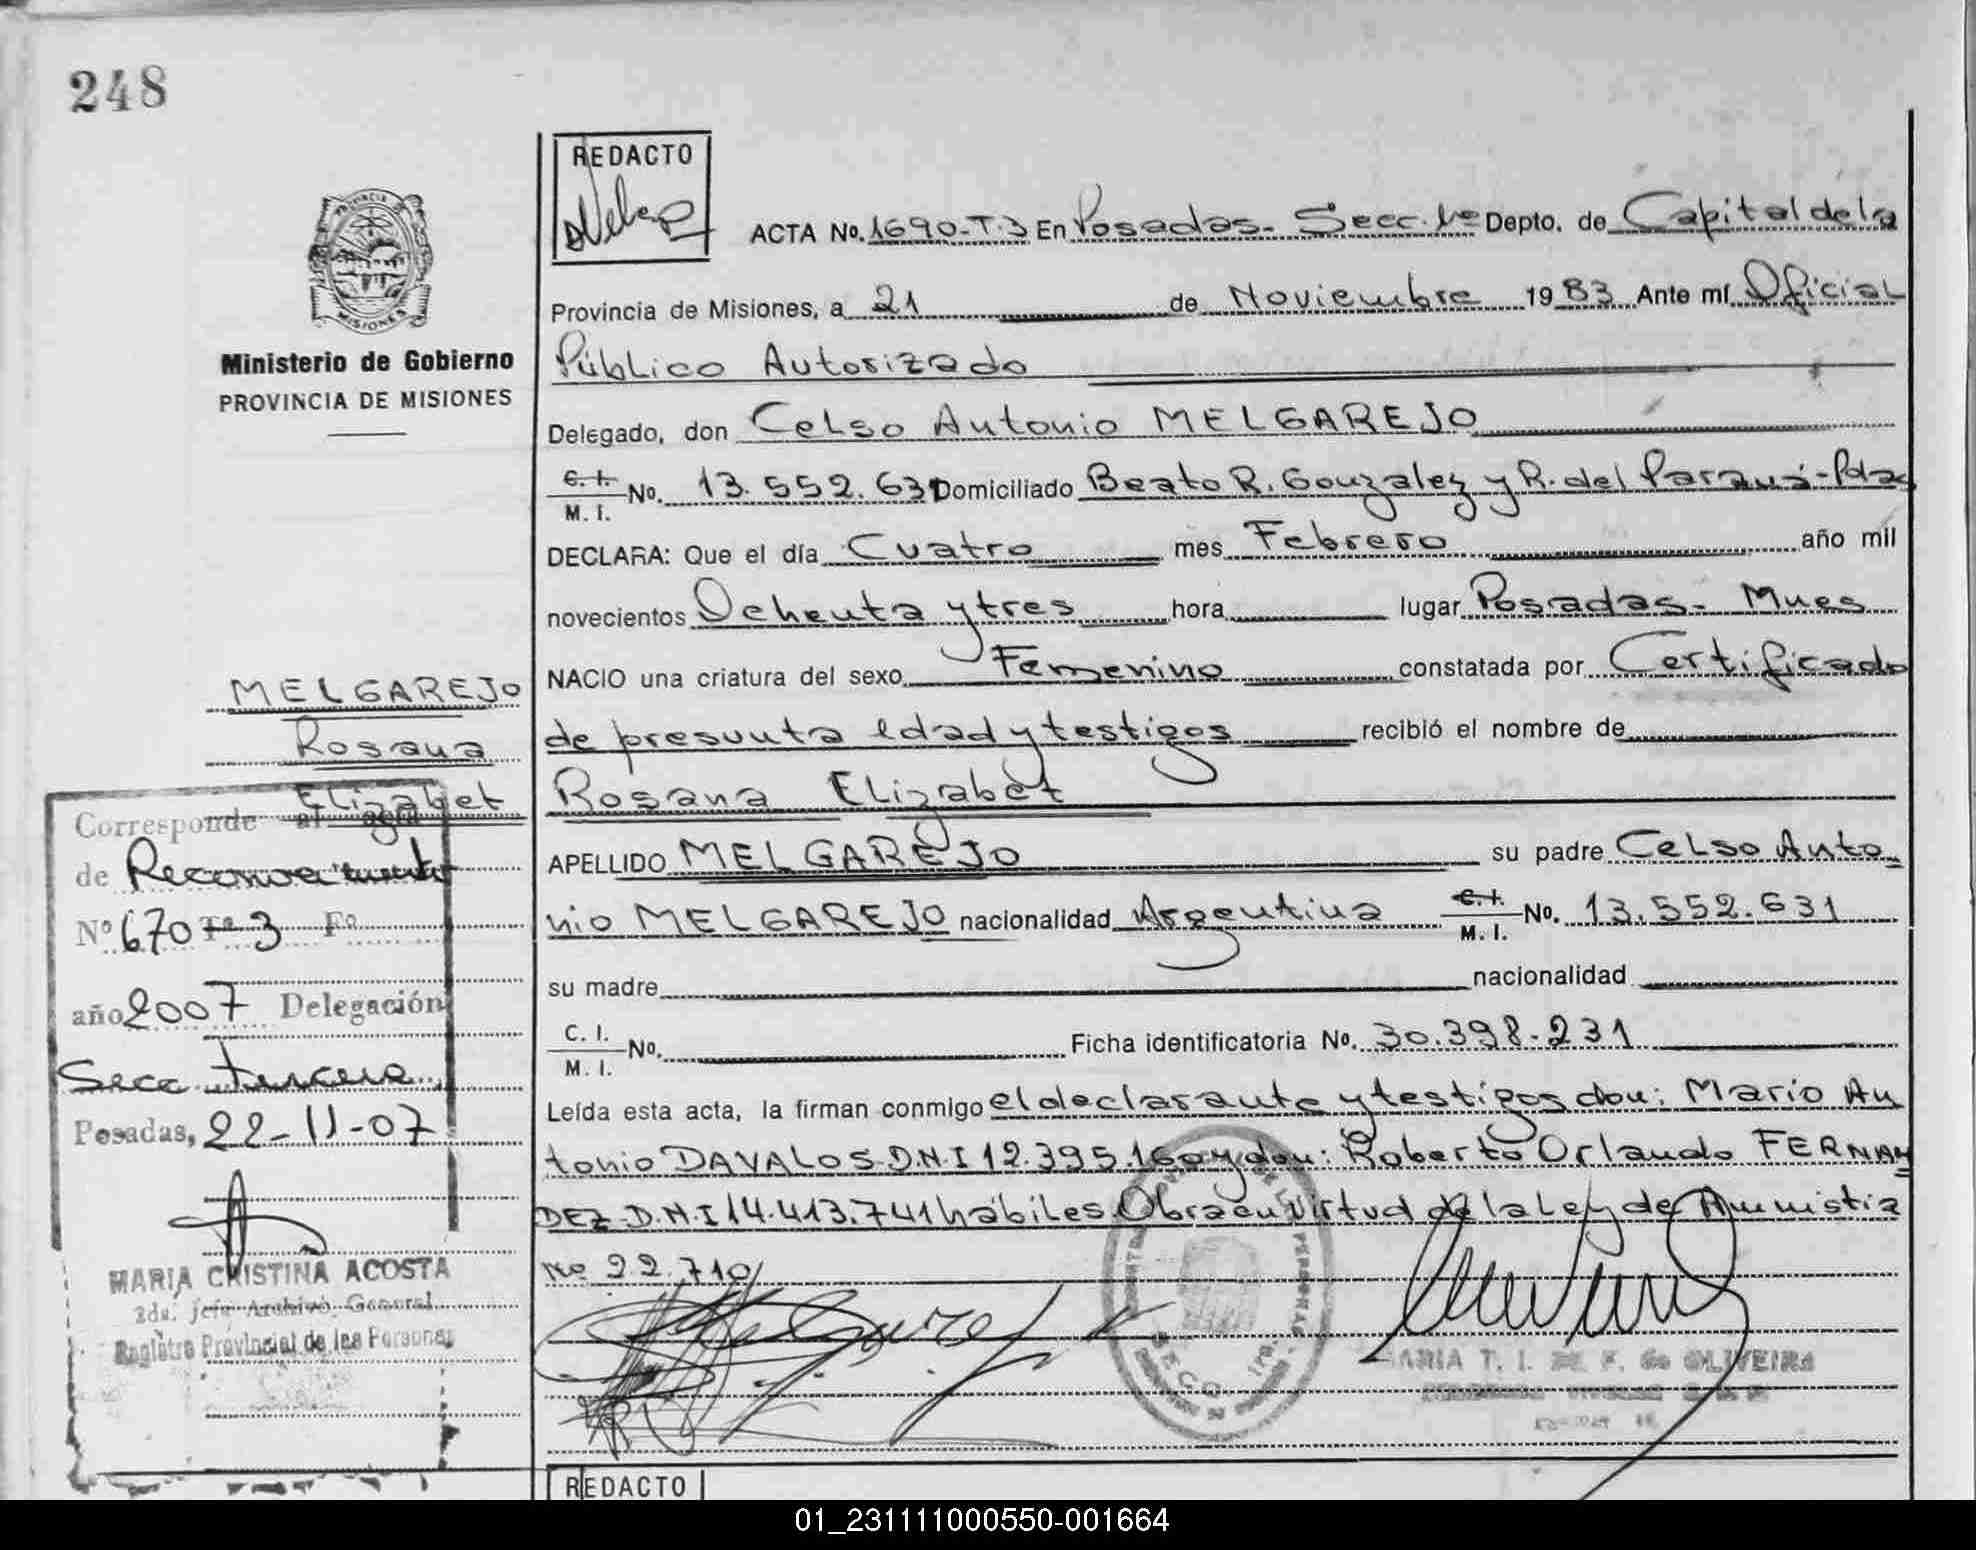 248
REDACTO
PROVINCIA DE
MISIONES
Ministerio de Gobierno
PROVINCIA DE MISIONES
ACTA No. 1690-T.3 En Posadas- Secc. 1ra Depto. de Capital de la
Provincia de Misiones, a 21 de Noviembre 1983 Ante mí Oficial
Público Autorizado
Delegado, don Celso Antonio MELGAREJO
C. I. M. I. No. 13.552.631 Domiciliado Beato R. Gonzalez y R. del Paraná-Pdas
DECLARA: Que el día Cuatro mes Febrero año mil
novecientos Ochenta y tres hora lugar Posadas- Mnes
NACIO una criatura del sexo Femenino constatada por Certificado
de presunta edad y testigos recibió el nombre de
Rosana Elizabet
APELLIDO MELGAREJO su padre Celso Anto
nio MELGAREJO nacionalidad Argentina C. I. M. I. No. 13.552.631
su madre nacionalidad
C. I. M. I. No. Ficha identificatoria No. 30.398-231
Leída esta acta, la firman conmigo el declarante y testigos don: Mario An
tonio DAVALOS D.N.I 12.395.160 y don: Roberto Orlando FERNAN
DEZ D.N.I 14.413.741 hábiles Obra en virtud de la Ley de Amnistia
No 22.710
MARIA T. I. DE F. de OLIVEIRA
MELGAREJO
Rosana
Elizabet
Corresponde al agr.
de Reconocimiento
Nº 670 Tº 3 Fº
año 2007 Delegación
Secc tercera
Posadas, 22-11-07
MARIA CRISTINA ACOSTA
2da. Jefe Archivo General
Registro Provincial de las Personas
REDACTO
01_231111000550-001664